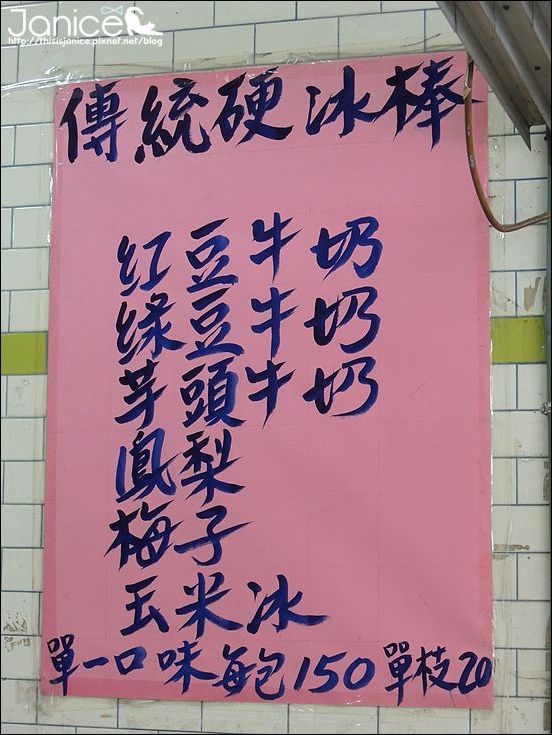 Janice
http://thisisjanice.pixnet.net/blog
傳統硬冰棒
紅豆牛奶
綠豆牛奶
芋頭牛奶
鳳梨
梅子
玉米冰
單一口味每包150單枝20